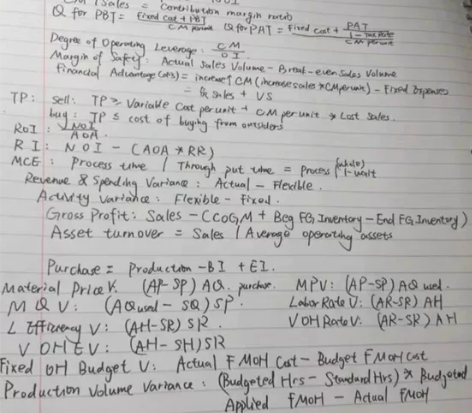 CM / Sales = Contribution margin ratio
Q for PBT = Fixed Cost + PBT / CM per unit Q for PAT = Fixed cost + PAT / 1 - tax rate / CM per unit
Degree of Operating Leverage: CM / OI
Margin of Safety: Actual Sales Volume - Break-even Sales Volume
Financial Advantage = increase↑ CM (increase sales * CM per unit) - Fixed Expenses
= sales + VS
TP: Sell: TP ≥ Variable Cost per unit + CM per unit * Lost Sales.
buy: TP ≤ cost of buying from outsiders
ROI: NOI / AOA
RI: NOI - (AOA * RR)
MCE: Process time / Through put time = Process / 1-wait
Revenue & Spending Variance: Actual - Flexible.
Activity Variance: Flexible - Fixed.
Gross Profit: Sales - (COGM + Beg FG Inventory - End FG Inventory)
Asset turnover = Sales / Average operating assets
Purchase = Production - BI + EI.
Material Price V. (AP-SP) AQ. purchase. MPV: (AP-SP) AQ used.
M Q V: (AQ used - SQ) SP. Labor Rate V: (AR-SR) AH
L Efficiency V: (AH-SH) SR. VOH Rate V: (AR-SR) AH
V OH E V: (AH-SH) SR
Fixed OH Budget V: Actual FMOH Cost - Budget FMOH Cost
Production Volume Variance: (Budgeted Hrs - Standard Hrs) * Budgeted
Applied FMOH - Actual FMOH